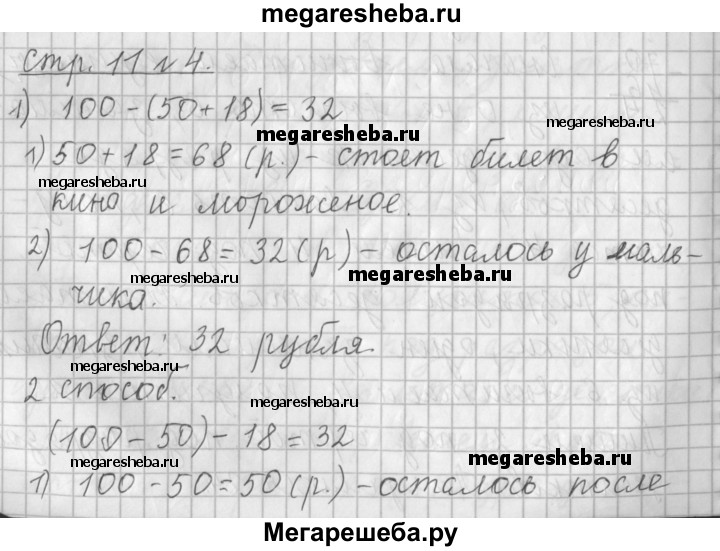 megaresheba.ru
стр. 11 № 4.
1) 100 - (50 + 18) = 32
megaresheba.ru
1) 50 + 18 = 68 (р.) - стоет билет в
megaresheba.ru
кино и мороженое.
megaresheba.ru
2) 100 - 68 = 32 (р) - осталось у маль-
megaresheba.ru
чика.
Ответ: 32 рубля.
megaresheba.ru
2 способ.
megaresheba.ru
(100 - 50) - 18 = 32
megaresheba.ru
1) 100 - 50 = 50 (р.) - осталось после
megaresheba.ru
Мегарешеба.ру